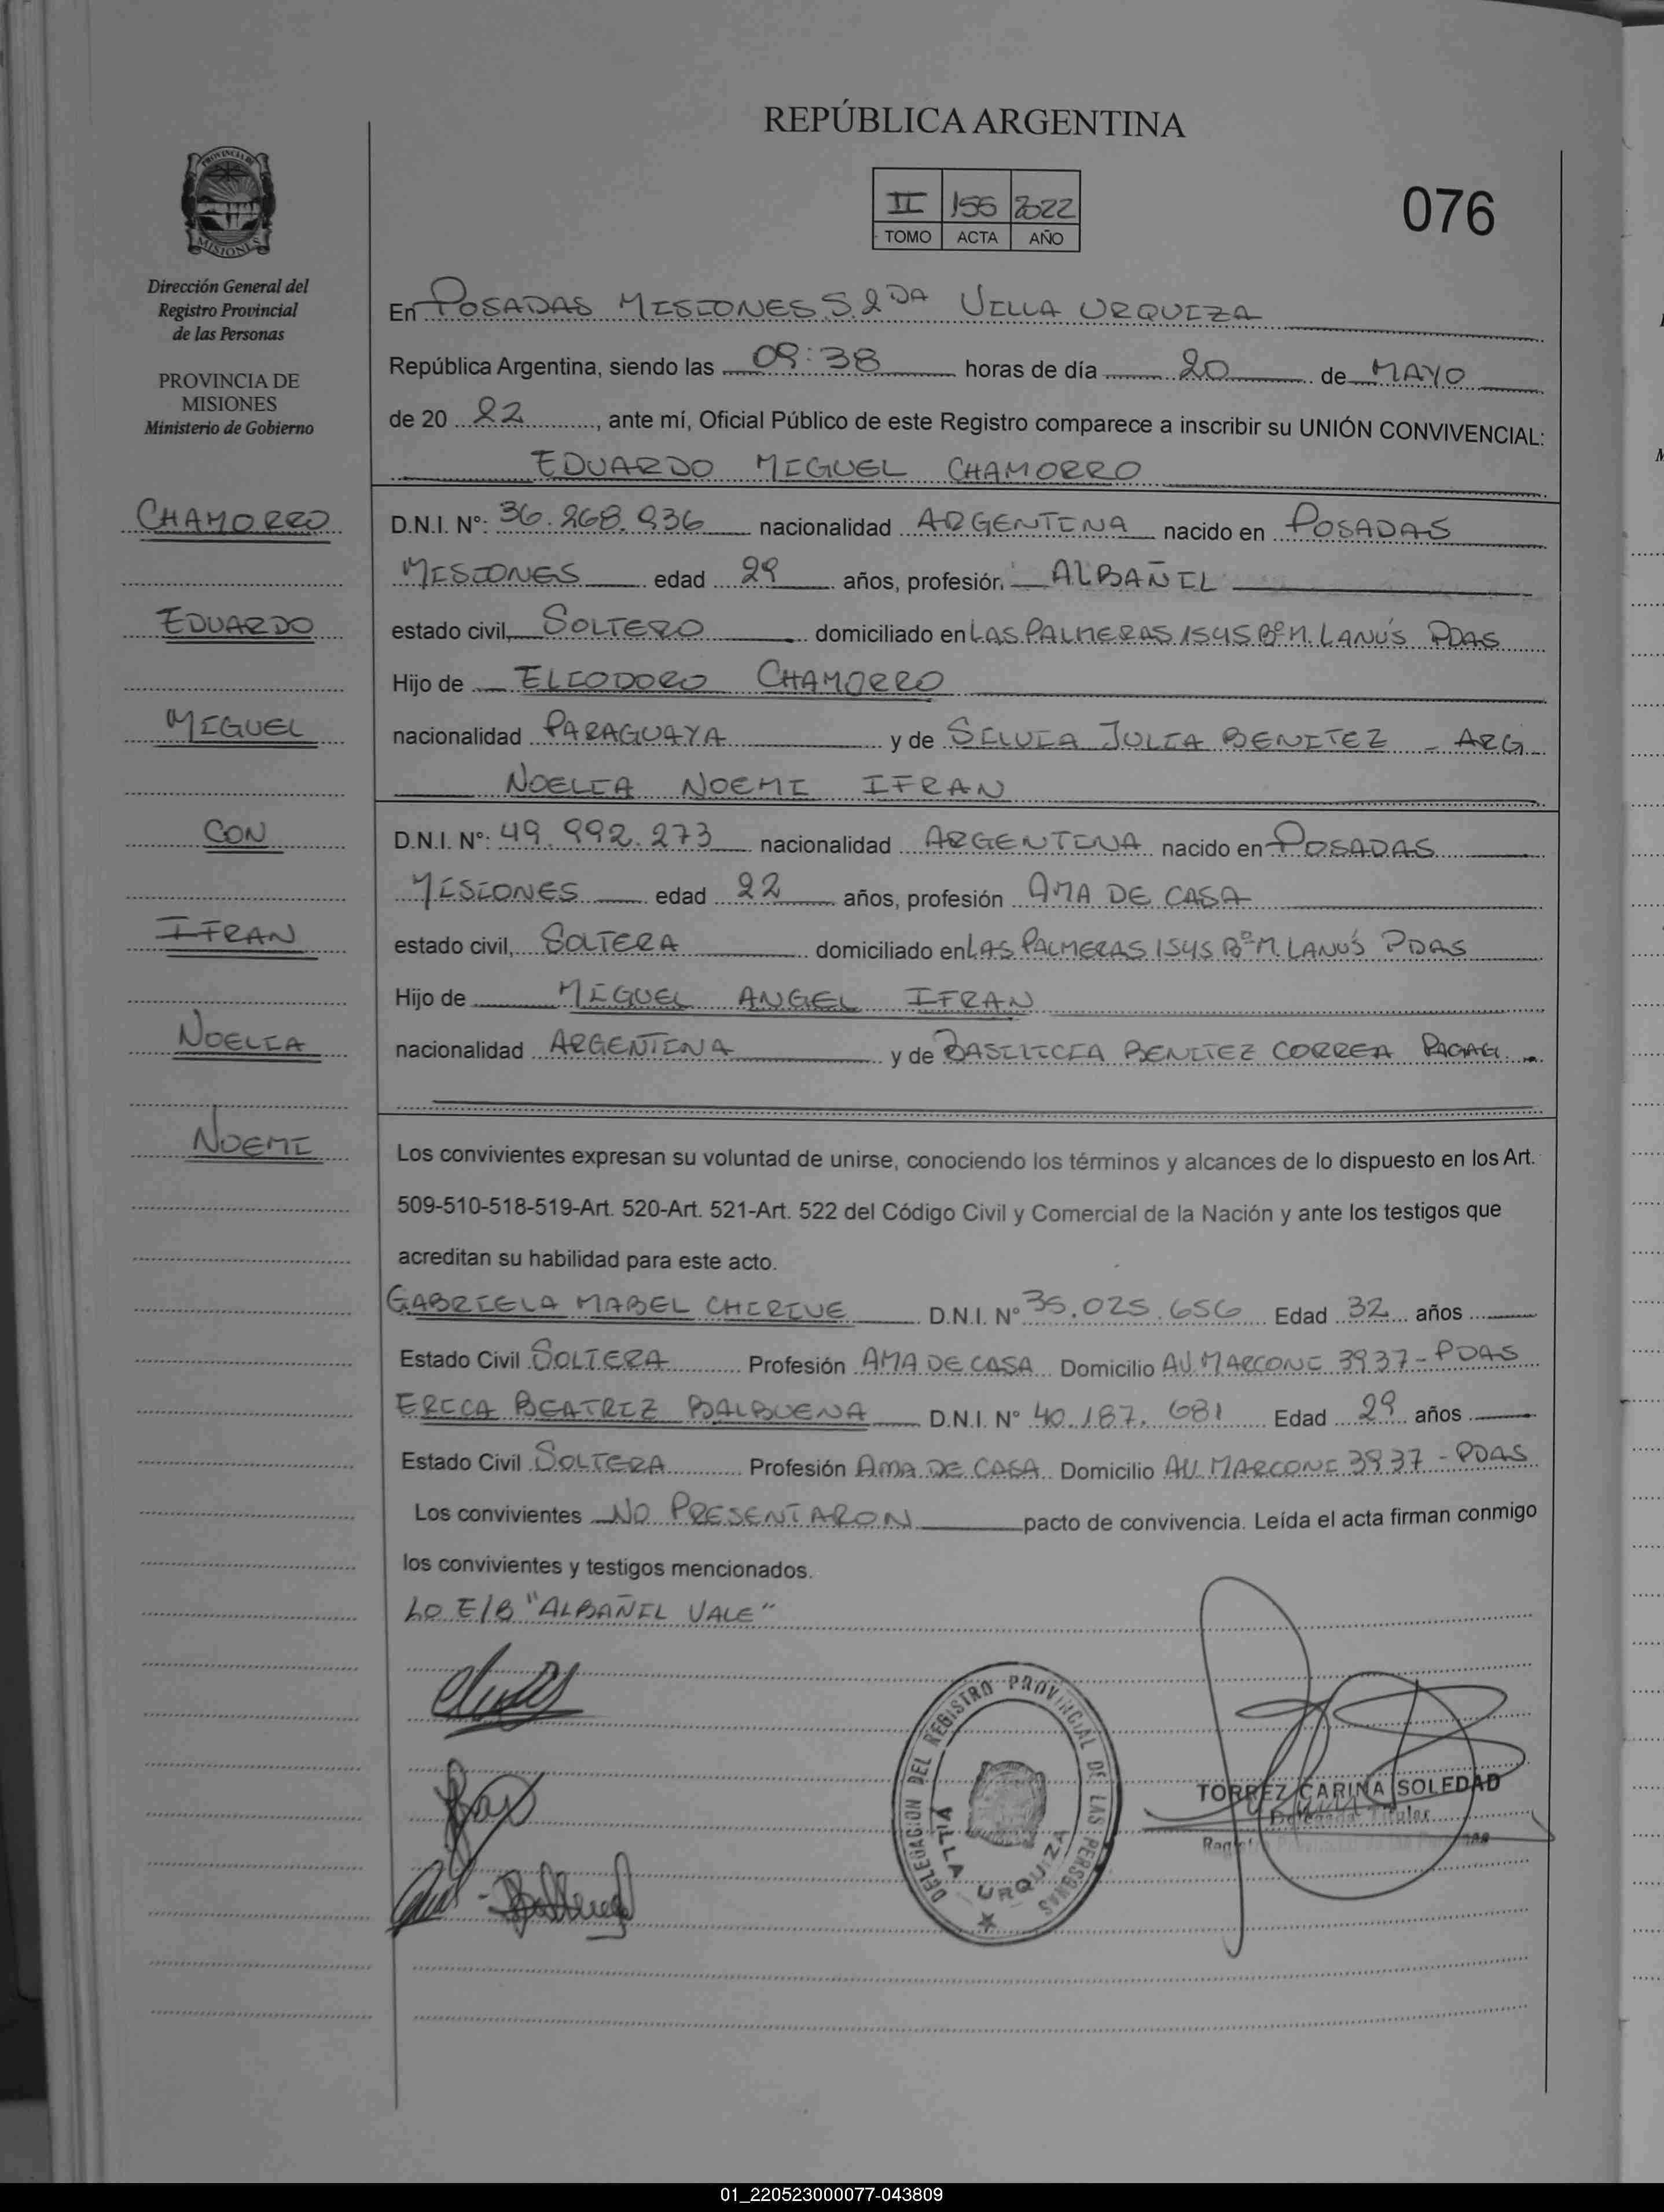 REPÚBLICA ARGENTINA
II 155 2022
TOMO ACTA AÑO
076
PROVINCIA DE
MISIONES
Dirección General del
Registro Provincial
de las Personas
PROVINCIA DE
MISIONES
Ministerio de Gobierno
CHAMORRO
EDUARDO
MIGUEL
CON
IFRAN
NOELIA
NOEMI
En POSADAS MISIONES S. 2DA VILLA URQUIZA
República Argentina, siendo las 09:38 horas de día 20 de MAYO
de 20 22, ante mí, Oficial Público de este Registro comparece a inscribir su UNIÓN CONVIVENCIAL:
EDUARDO MIGUEL CHAMORRO
D.N.I. N°: 36.268.936 nacionalidad ARGENTINA nacido en POSADAS
MISIONES edad 29 años, profesión, ALBAÑIL
estado civil, SOLTERO domiciliado en LAS PALMERAS 1545 Bº M. LANÚS PDAS
Hijo de ELIODORO CHAMORRO
nacionalidad PARAGUAYA y de SILVIA JULIA BENITEZ - ARG
NOELIA NOEMI IFRAN
D.N.I. N°: 49.992.273 nacionalidad ARGENTINA nacido en POSADAS
MISIONES edad 22 años, profesión AMA DE CASA
estado civil, SOLTERA domiciliado en LAS PALMERAS 1545 Bº M. LANÚS PDAS
Hijo de MIGUEL ANGEL IFRAN
nacionalidad ARGENTINA y de BASILICIA BENITEZ CORREA
Los convivientes expresan su voluntad de unirse, conociendo los términos y alcances de lo dispuesto en los Art.
509-510-518-519-Art. 520-Art. 521-Art. 522 del Código Civil y Comercial de la Nación y ante los testigos que
acreditan su habilidad para este acto.
GABRIELA MABEL CHIRIVE D.N.I. N° 35.025.656 Edad 32 años
Estado Civil SOLTERA Profesión AMA DE CASA Domicilio AV. MARCONI 3937 - PDAS
ERICA BEATRIZ BALBUENA D.N.I. N° 40.187.681 Edad 29 años
Estado Civil SOLTERA Profesión AMA DE CASA Domicilio AV. MARCONI 3937 - PDAS
Los convivientes NO PRESENTARON pacto de convivencia. Leída el acta firman conmigo
los convivientes y testigos mencionados.
LO E/B "ALBAÑIL VALE"
DELEGACION DEL REGISTRO PROVINCIAL DE LAS PERSONAS
VILLA URQUIZA
TORREZ CARINA SOLEDAD
Delegada Titular
01_220523000077-043809